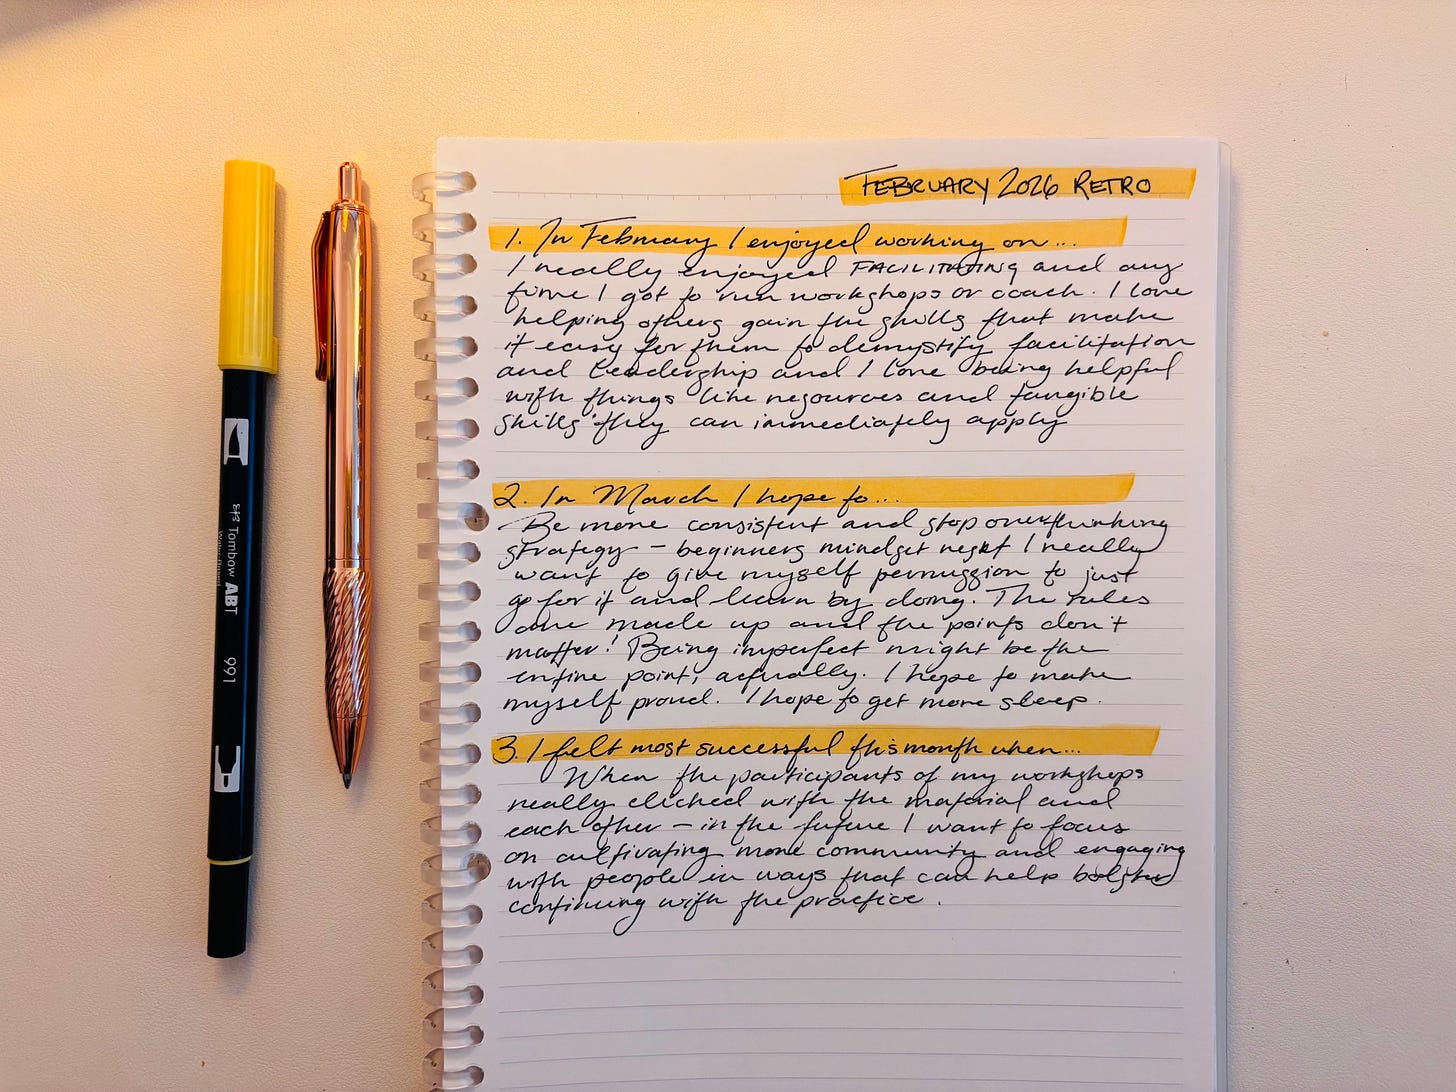 FEBRUARY 2026 RETRO
1. In February I enjoyed working on...
I really enjoyed FACILITATING and any
time I got to run workshops or coach. I love
helping others gain the skills that make
it easy for them to demystify facilitation
and leadership and I love being helpful
with things like resources and tangible
skills they can immediately apply
2. In March I hope to...
Be more consistent and stop overthinking
strategy – beginners mindset I really
want to give myself permission to just
go for it and learn by doing. The rules
are made up and the points don't
matter! Being imperfect might be the
entire point, actually. I hope to make
myself proud. I hope to get more sleep.
3. I felt most successful this month when...
When the participants of my workshops
really clicked with the material and
each other – in the future I want to focus
on cultivating more community and engaging
with people in ways that can help bolster
continuing with the practice.
Tombow ABT
991